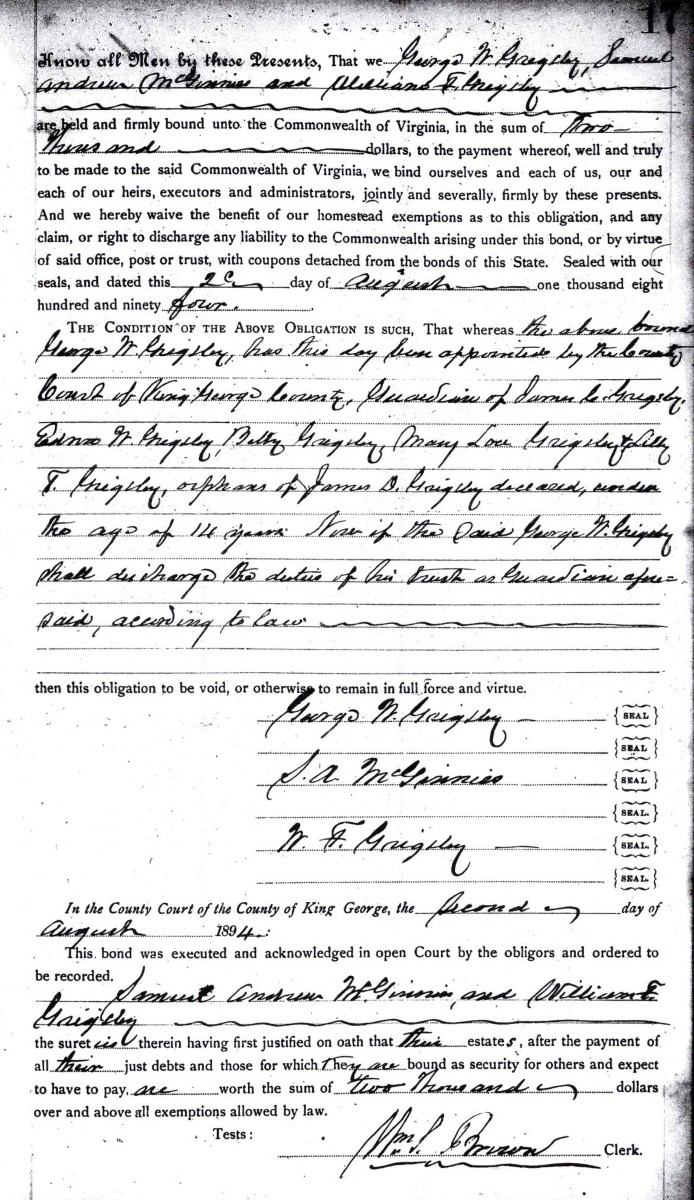 17
Know all Men by these Presents, That we George W. Grigsby, Samuel
Andrew McGinnies and William F. Grigsby
are held and firmly bound unto the Commonwealth of Virginia, in the sum of Two
Thousand dollars, to the payment whereof, well and truly
to be made to the said Commonwealth of Virginia, we bind ourselves and each of us, our and
each of our heirs, executors and administrators, jointly and severally, firmly by these presents.
And we hereby waive the benefit of our homestead exemptions as to this obligation, and any
claim, or right to discharge any liability to the Commonwealth arising under this bond, or by virtue
of said office, post or trust, with coupons detached from the bonds of this State. Sealed with our
seals, and dated this 2d day of August one thousand eight
hundred and ninety four.
The Condition of the Above Obligation is such, That whereas the above bound
George W. Grigsby, has this day been appointed by the County
Court of King George County, Guardian of James C. Grigsby,
Edna W. Grigsby, Betty Grigsby, Mary Lou Grigsby & Lilly
F. Grigsby, orphans of James D. Grigsby deceased, under
the age of 14 years. Now if the said George W. Grigsby
shall discharge the duties of his trust as Guardian afore=
said, according to law
then this obligation to be void, or otherwise to remain in full force and virtue.
George W. Grigsby {SEAL}
{SEAL}
S. A. McGinnies {SEAL}
{SEAL.}
W. F. Grigsby {SEAL}
{SEAL.}
In the County Court of the County of King George, the Second day of
August 1894.
This bond was executed and acknowledged in open Court by the obligors and ordered to
be recorded.
Samuel Andrew McGinnies, and William F.
Grigsby
the sureties therein having first justified on oath that their estates, after the payment of
all their just debts and those for which they are bound as security for others and expect
to have to pay, are worth the sum of two thousand dollars
over and above all exemptions allowed by law.
Tests:
Wm. S. Brown Clerk.